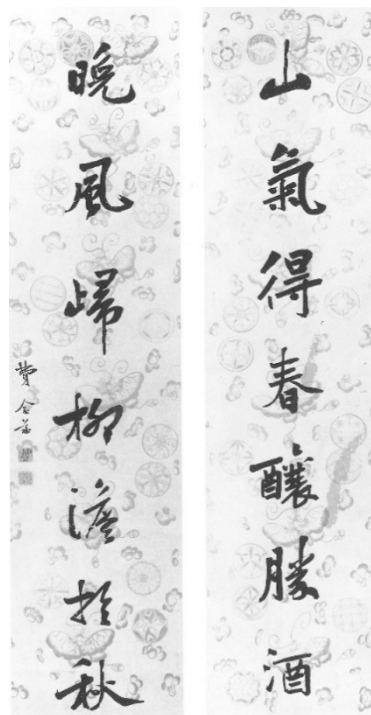 山氣得春釀勝酒
晚風歸柳澹扵秋
費念慈